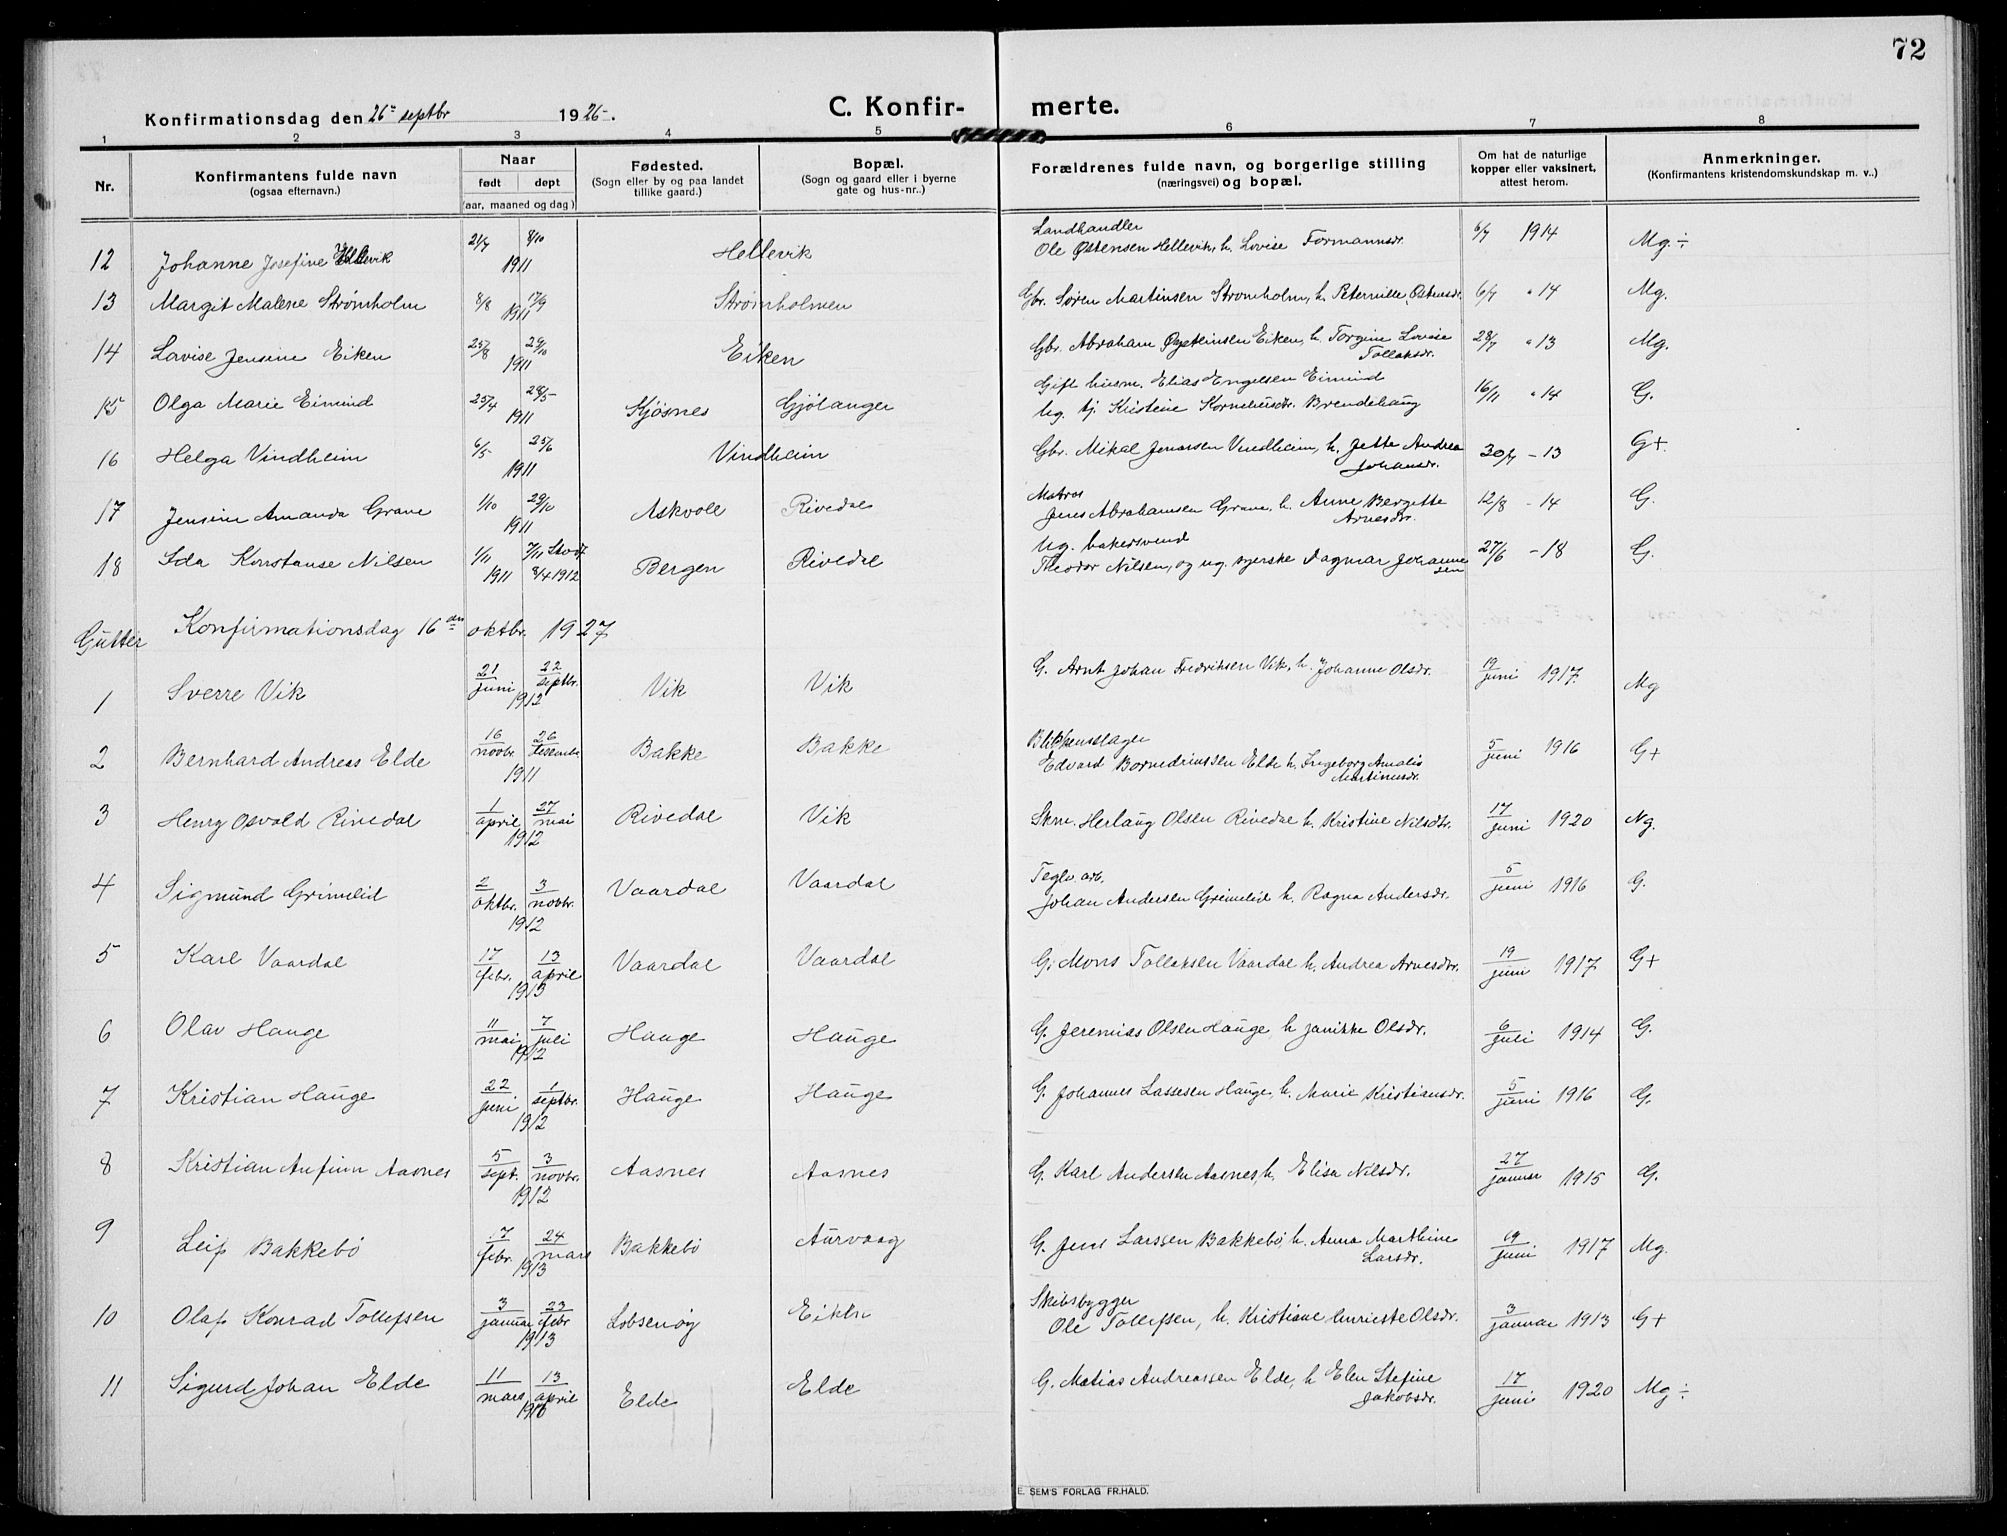 72
Konfirmationsdag den 26de septbr 1926.
C. Konfirmerte.
1 2 3 4 5 6 7 8
Nr.
Konfirmantens fulde navn
(ogsaa efternavn.)
Naar
født døpt
(aar, maaned og dag)
Fødested.
(Sogn eller by og paa landet
tillike gaard.)
Bopæl.
(Sogn og gaard eller i byerne
gate og hus-nr..)
Forældrenes fulde navn, og borgerlige stilling
(næringsvei) og bopæl.
Om hat de naturlige
kopper eller vaksinert,
attest herom.
Anmerkninger.
(Konfirmantens kristendomskundskap m. v..)
12 Johanne Josefine Hellevik 21/7 8/10 1911 Hellevik Landhandler Ole Østensen Hellevik, h. Lovise Formannsdr. 6/7 1914 Mg ÷
13 Margit Malene Strømholm 8/8 17/9 1911 Strømholmen Gbr. Søren Martinsen Strømholm, h. Peternille Østensdr. 6/7 " 14 Mg.
14 Lovise Jensine Eiken 25/8 29/10 1911 Eiken Gbr. Abraham Øysteinsen Eiken, h. Torgine Lovise Tollaksdr. 28/7 " 13 Mg.
15 Olga Marie Eimind 25/4 28/5 1911 Kjøsnes Gjølanger Gift husm. Elias Engelsen Eimind Ug. tj. Kristine Korneliusdtr. Brendehaug 16/11 " 14 G.
16 Helga Vindheim 6/5 25/6 1911 Vindheim Gbr. Mikal Jenssen Vindheim, h. Jette Andrea Johansdr. 30/7 – 13 G+
17 Jensine Amanda Grane 1/10 29/10 1911 Askvoll Rivedal Matros Jens Abrahamsen Grane, h. Anne Bergitte Arnesdr. 12/8 – 14 G.
18 Ida Konstanse Nilsen 1/11 1911 7/11 Stadf. 8/4 1912 Bergen Rivedal Ug. bakersvend Theodor Nilsen, og ug. syerske Dagmar Johannesen 27/6 – 18 G.
Gutter Konfirmationsdag 16den oktbr. 1927
1 Sverre Vik 21 juni 22 septbr. 1912 Vik Vik G. Arnt Johan Fredriksen Vik, h. Johanne Olsdr. 19 juni 1917. Mg
2 Bernhard Andreas Elde 16 novbr. 26 desembr. 1911 Bakke Bakke Blikkenslager Edvard Bornedrinssen Elde h. Ingeborg Amalia Martinusdr. 5 juni 1916 G+
3 Henry Osvald Rivedal 1 april 27 mai 1912 Rivedal Vik Skm. Herlaug Olsen Rivedal h. Kristine Nilsdtr. 17 juni 1920 Ng.
4 Sigmund Grimelid 2 oktbr. 3 novbr. 1912 Vaardal Vaardal Teglv. arb. Johan Andersen Grimelid h. Ragna Andersdr. 5 juni 1916 G.
5 Karl Vaardal 17 febr. 13 april 1913 Vaardal Vaardal G. Mons Tollaksen Vaardal h. Andrea Arnesdtr. 19 juni 1917 G+
6 Olav Hauge 11 mai 7 juli 1912 Hauge Hauge G. Jeremias Olsen Hauge, h. Janikke Olsdr. 6 juli 1914 G.
7 Kristian Hauge 22 juni 1 septbr. 1912 Hauge Hauge G. Johannes Lassesen Hauge, h. Marie Kristiansdr. 5 juni 1916 G.
8 Kristian Anfinn Aasnes 5 sept. 3 novbr. 1912 Aasnes Aasnes G. Karl Andersen Aasnes, h. Elisa Nilsdr. 27 januar 1915 G.
9 Leif Bakkebö 7 febr. 24 mars 1913 Bakkebö Aurvaag G. Jens Larssen Bakkebö, h. Anna Marthine Larsdr. 19 juni 1917 Mg.
10 Olaf Konrad Tollefsen 3 januar 23 febr 1913 Lobsenög Eiken Skibsbygger Ole Tollefsen, h. Kristiane Henriette Olsdr. 3 januar 1913 G+
11 Sigurd Johan Elde 11 mars 13 april Elde Elde G. Matias Andreassen Elde, h Elen Stefine Jakobsdr. 17 juni 1920 Mg ÷
E. SEM'S FORLAG FR.HALD.